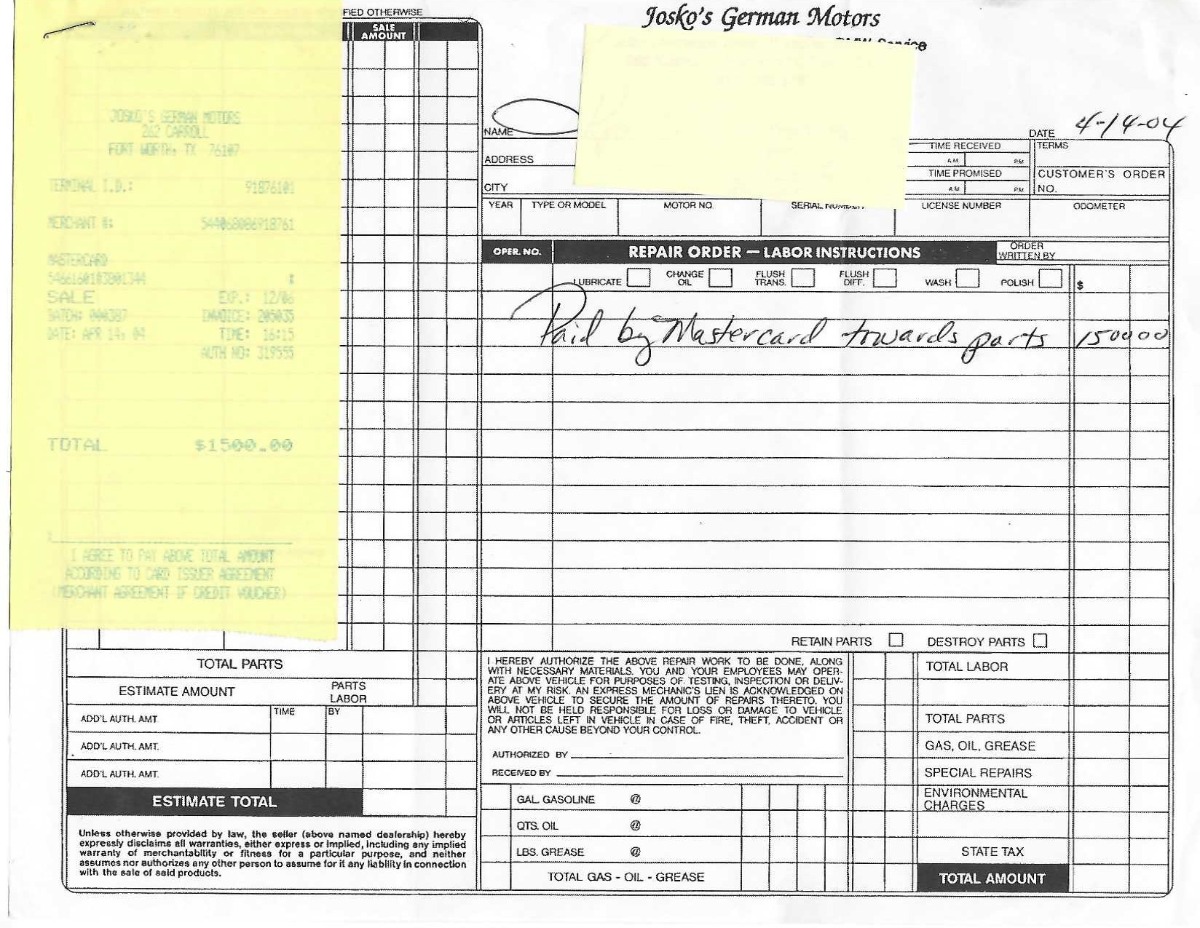 FIED OTHERWISE
SALE AMOUNT
Josko's German Motors
Service
JOSKO'S GERMAN MOTORS
262 CARROLL
FORT WORTH, TX 76107
TERMINAL I.D.: 91876101
MERCHANT #:
MASTERCARD
SALE EXP.: 12/06
BATCH: 000387 INVOICE: 205035
DATE: APR 14, 04 TIME: 16:15
AUTH NO: 319555
TOTAL $1500.00
I AGREE TO PAY ABOVE TOTAL AMOUNT
ACCORDING TO CARD ISSUER AGREEMENT
(MERCHANT AGREEMENT IF CREDIT VOUCHER)
NAME
DATE 4-14-04
ADDRESS
TIME RECEIVED
A.M. P.M.
TERMS
TIME PROMISED
A.M. P.M.
CUSTOMER'S ORDER NO.
CITY
YEAR TYPE OR MODEL MOTOR NO. SERIAL NUMBER LICENSE NUMBER ODOMETER
OPER. NO. REPAIR ORDER — LABOR INSTRUCTIONS ORDER WRITTEN BY
LUBRICATE CHANGE OIL FLUSH TRANS. FLUSH DIFF. WASH POLISH $
Paid by Mastercard towards parts 1500 00
RETAIN PARTS DESTROY PARTS
TOTAL PARTS
ESTIMATE AMOUNT PARTS LABOR
TIME BY
ADD'L AUTH. AMT.
ADD'L AUTH. AMT.
ADD'L AUTH. AMT.
ESTIMATE TOTAL
Unless otherwise provided by law, the seller (above named dealership) hereby
expressly disclaims all warranties, either express or implied, including any implied
warranty of merchantability or fitness for a particular purpose, and neither
assumes nor authorizes any other person to assume for it any liability in connection
with the sale of said products.
I HEREBY AUTHORIZE THE ABOVE REPAIR WORK TO BE DONE, ALONG
WITH NECESSARY MATERIALS. YOU AND YOUR EMPLOYEES MAY OPER-
ATE ABOVE VEHICLE FOR PURPOSES OF TESTING, INSPECTION OR DELIV-
ERY AT MY RISK. AN EXPRESS MECHANIC'S LIEN IS ACKNOWLEDGED ON
ABOVE VEHICLE TO SECURE THE AMOUNT OF REPAIRS THERETO. YOU
WILL NOT BE HELD RESPONSIBLE FOR LOSS OR DAMAGE TO VEHICLE
OR ARTICLES LEFT IN VEHICLE IN CASE OF FIRE, THEFT, ACCIDENT OR
ANY OTHER CAUSE BEYOND YOUR CONTROL.
AUTHORIZED BY
RECEIVED BY
GAL. GASOLINE @
QTS. OIL @
LBS. GREASE @
TOTAL GAS - OIL - GREASE
TOTAL LABOR
TOTAL PARTS
GAS, OIL, GREASE
SPECIAL REPAIRS
ENVIRONMENTAL CHARGES
STATE TAX
TOTAL AMOUNT